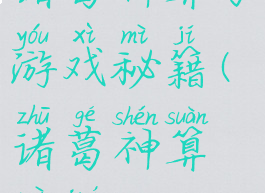 yóu xì mì jí
游戏秘籍(
zhū gé shén suàn
诸葛神算